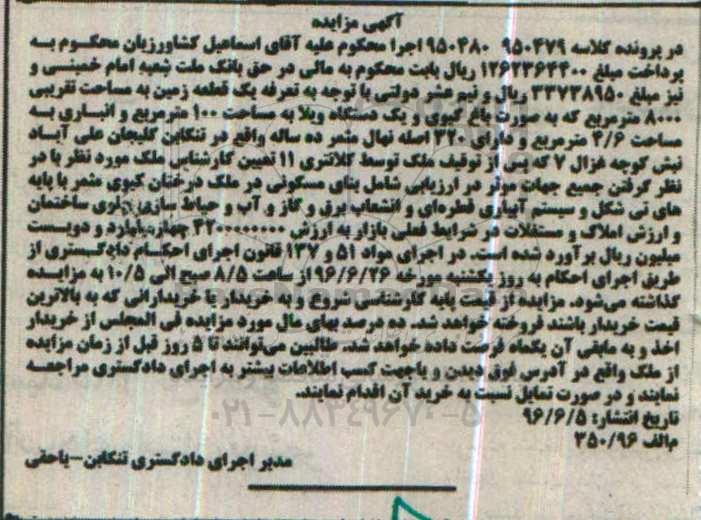 آگهی مزایده
در پرونده کلاسه ۹۵۰۴۷۹ ۹۵۰۴۸۰ اجرا محکوم علیه آقای اسماعیل کشاورزیان محکوم به
پرداخت مبلغ ۱۲۶۲۳۶۴۴۰۰ ریال بابت محکوم به مالی در حق بانک ملت شعبه امام خمینی و
نیز مبلغ ۳۳۷۳۸۹۵۰ ریال و نیم عشر دولتی با توجه به تعرفه یک قطعه زمین به مساحت تقریبی
۸۰۰۰ مترمربع که به صورت باغ کیوی و یک دستگاه ویلا به مساحت ۱۰۰ مترمربع و انباری به
مساحت ۴/۶ مترمربع و دارای ۳۲۰ اصله نهال مثمر ده ساله واقع در تنکابن گلیجان علی آباد
نبش کوچه غزال ۷ که پس از توقیف ملک توسط کلانتری ۱۱ تعیین کارشناس ملک مورد نظر با در
نظر گرفتن جمیع جهات موثر در ارزیابی شامل بنای مسکونی در ملک درختان کیوی مثمر با پایه
های تی شکل و سیستم آبیاری قطره‌ای و انشعاب برق و گاز و آب و حیاط سازی ساختمان
و ارزش املاک و مستغلات در شرایط فعلی بازار به ارزش ۴۲۰۰۰۰۰۰۰۰ چهار میلیارد و دویست
میلیون ریال برآورد شده است. در اجرای مواد ۵۱ و ۱۳۷ قانون اجرای احکام دادگستری از
طریق اجرای احکام به روز یکشنبه مورخه ۹۶/۶/۲۶ از ساعت ۸/۵ صبح الی ۱۰/۵ به مزایده
گذاشته می‌شود. مزایده از قیمت پایه کارشناسی شروع و به خریدار یا خریدارانی که به بالاترین
قیمت خریدار باشند فروخته خواهد شد. ده درصد بهای مال مورد مزایده فی المجلس از خریدار
اخذ و به مابقی آن یکماه فرصت داده خواهد شد. طالبین می‌توانند تا ۵ روز قبل از زمان مزایده
از ملک واقع در آدرس فوق دیدن و یاجهت کسب اطلاعات بیشتر به اجرای دادگستری مراجعه
نمایند و در صورت تمایل نسبت به خرید آن اقدام نمایند.
۰۲۱-۸۸۳۴۹۶۷۰-۵
تاریخ انتشار: ۹۶/۶/۵
م‌الف ۳۵۰/۹۶
مدیر اجرای دادگستری تنکابن-یاحقی